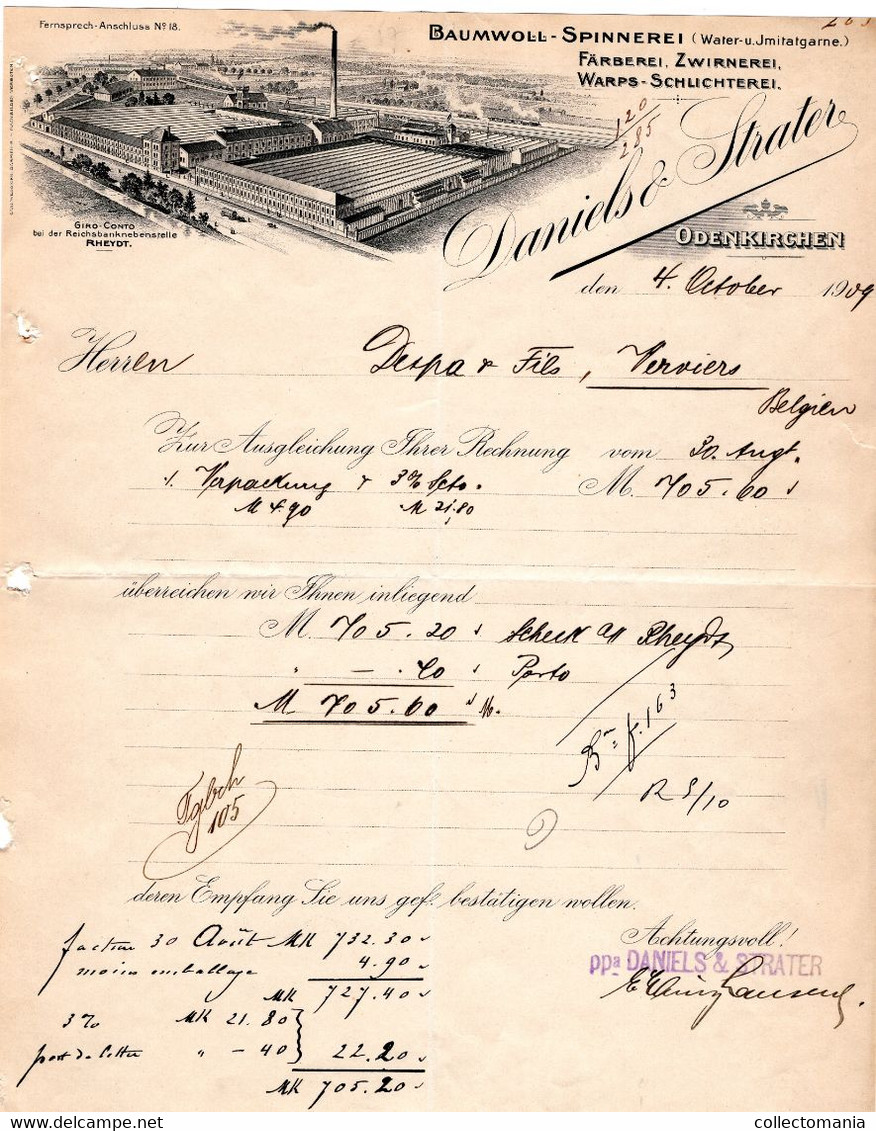 Fernsprech-Anschluss No 18.
BAUMWOLL-SPINNEREI (Water-u. Jmitatgarne.)
FÄRBEREI, ZWIRNEREI,
WARPS-SCHLICHTEREI.
120
285
Daniels & Strater
ODENKIRCHEN
GIRO-CONTO
bei der Reichsbanknebenstelle
RHEYDT.
den 4. October 1909
Herren Despa & Fils, Verviers
Belgien
Zur Ausgleichung Ihrer Rechnung vom 30. Augt.
Verpackung & 3% Scto. M. 705.60
M 4.90 M 21.80
überreichen wir Ihnen inliegend
M. 705.20 Scheck a/ Rheydt
" —.40 Porto
M 705.60 M.
f. 163
R 5/10
Tgbch
105
deren Empfang Sie uns gefl. bestätigen wollen.
Achtungsvoll!
ppa DANIELS & STRATER
facture 30 Août MK 732.30
moins emballage 4.90
MK 727.40
3% MK 21.80
port de lettre " — 40 22.20
MK 705.20
collectomania